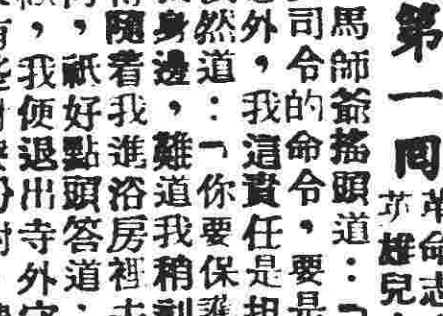 第一回
革命志
英雄兒
馬師爺搖頭道：「
司令的命令，要是
外，我這責任是担
然道：「你要保護
身邊，難道我稍
隨着我進浴房裡去
，祇好點頭答道：
，我便退出寺外